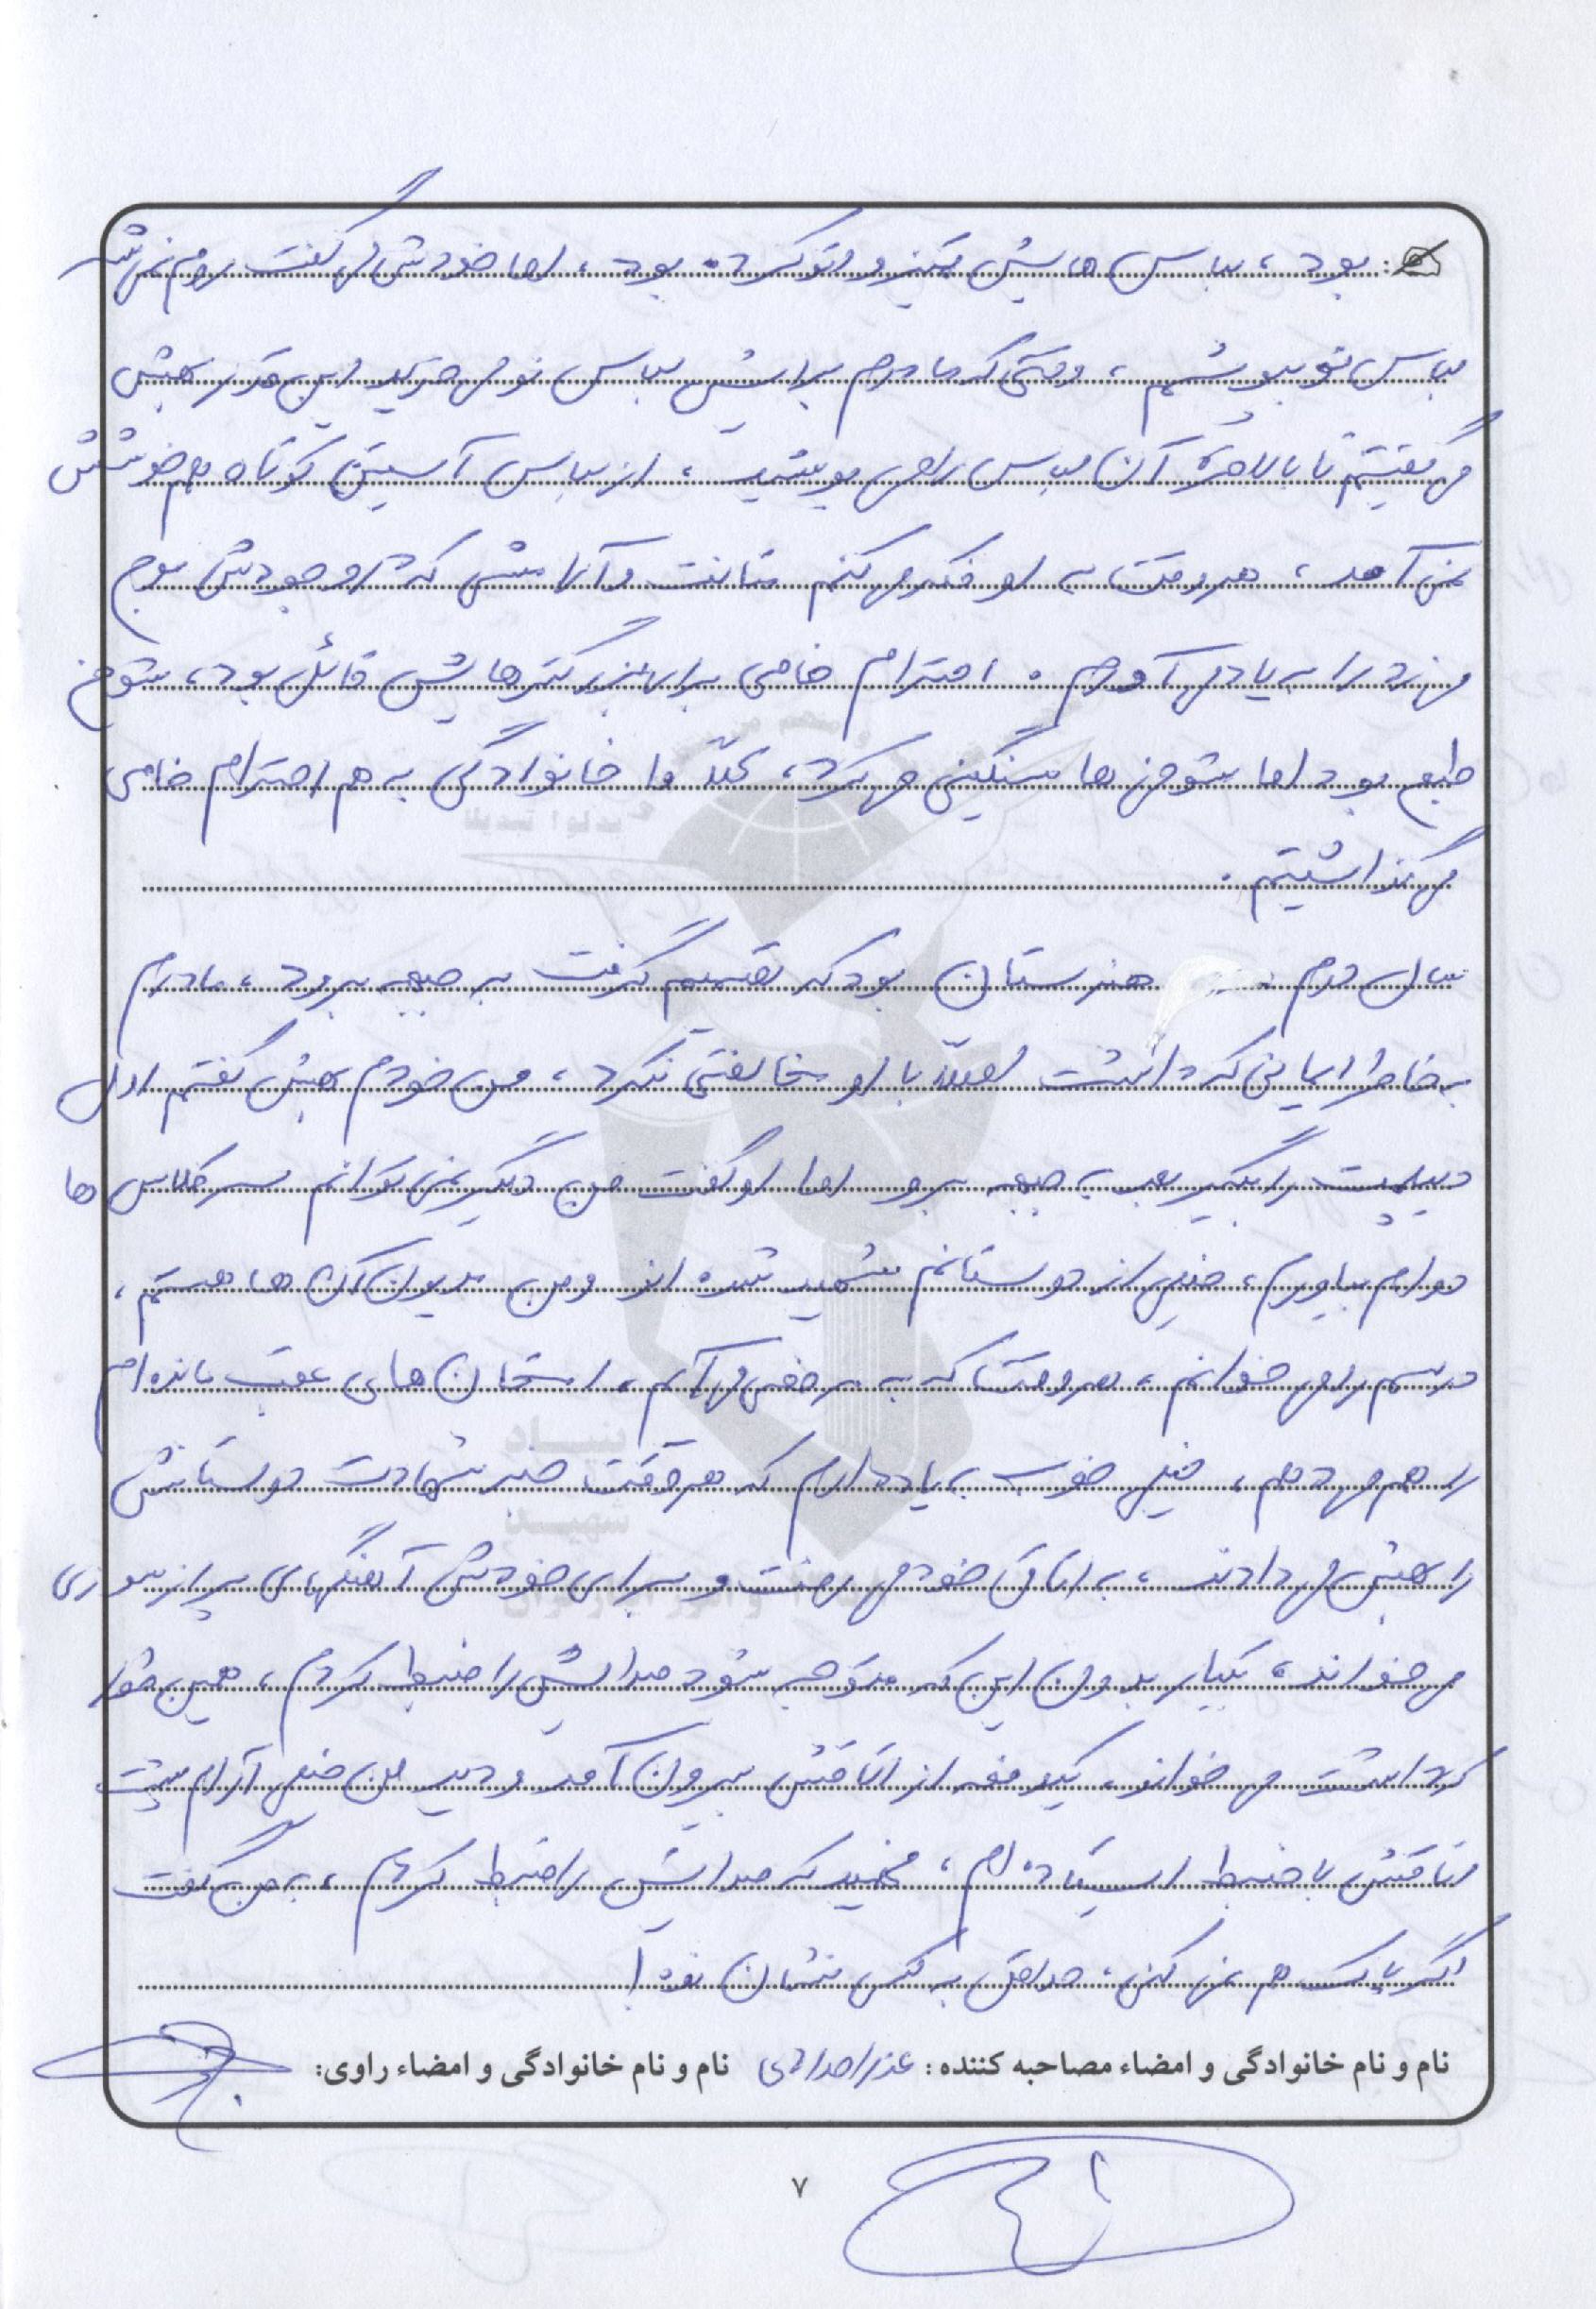 بود، لباس هایش تمیز و اتو کرده بود، اما خودش می گفت روم نمی شه
لباس نو بپوشم، وقتی که مادرم برایش لباس نو می خرید این قدر بهش
می گفتیم تا بالاخره آن لباس را می پوشید، از لباس آستین کوتاه هم خوشش
نمی آمد، هر وقت به او فکر می کنم متانت و آرامشی که در وجودش موج
می زد را به یاد می آورم. احترام خاصی برای بزرگترهایش قائل بود، شوخ
طبع بود اما شوخی ها سنگینی می کرد، کلاً ما خانوادگی به هم احترام خاصی
می گذاشتیم.
سال دوم هنرستان بود که تصمیم گرفت به جبهه برود، مادرم
به خاطر ایمانی که داشت اصلاً با او مخالفتی نکرد، من خودم بهش گفتم اول
دیپلمت را بگیر بعد به جبهه برو اما او گفت من دیگر نمی توانم سر کلاس ها
دوام بیاورم، خیلی از دوستانم شهید شده اند و من مدیون آن ها هستم،
درسم را می خوانم، هر وقت که به مرخصی می آیم، امتحان های عقب مانده ام
را هم می دهم، خیلی خوب به یاد دارم که هر وقت خبر شهادت دوستانش
را بهش می دادند، به اتاق خود می رفت و برای خودش آهنگهای پر از سوزی
می خواند، یکبار بدون این که متوجه شود صدایش را ضبط کردم، همین طور
که داشت می خواند، یکدفعه از اتاقش بیرون آمد و دید من خیلی آرام پشت
اتاقش با ضبط ایستاده ام، فهمید که صدایش را ضبط کردم، به من گفت
اگر پاک هم نمی کنی، حداقل به کسی نشان نده!
نام و نام خانوادگی و امضاء مصاحبه کننده: نام و نام خانوادگی و امضاء راوی:
۷